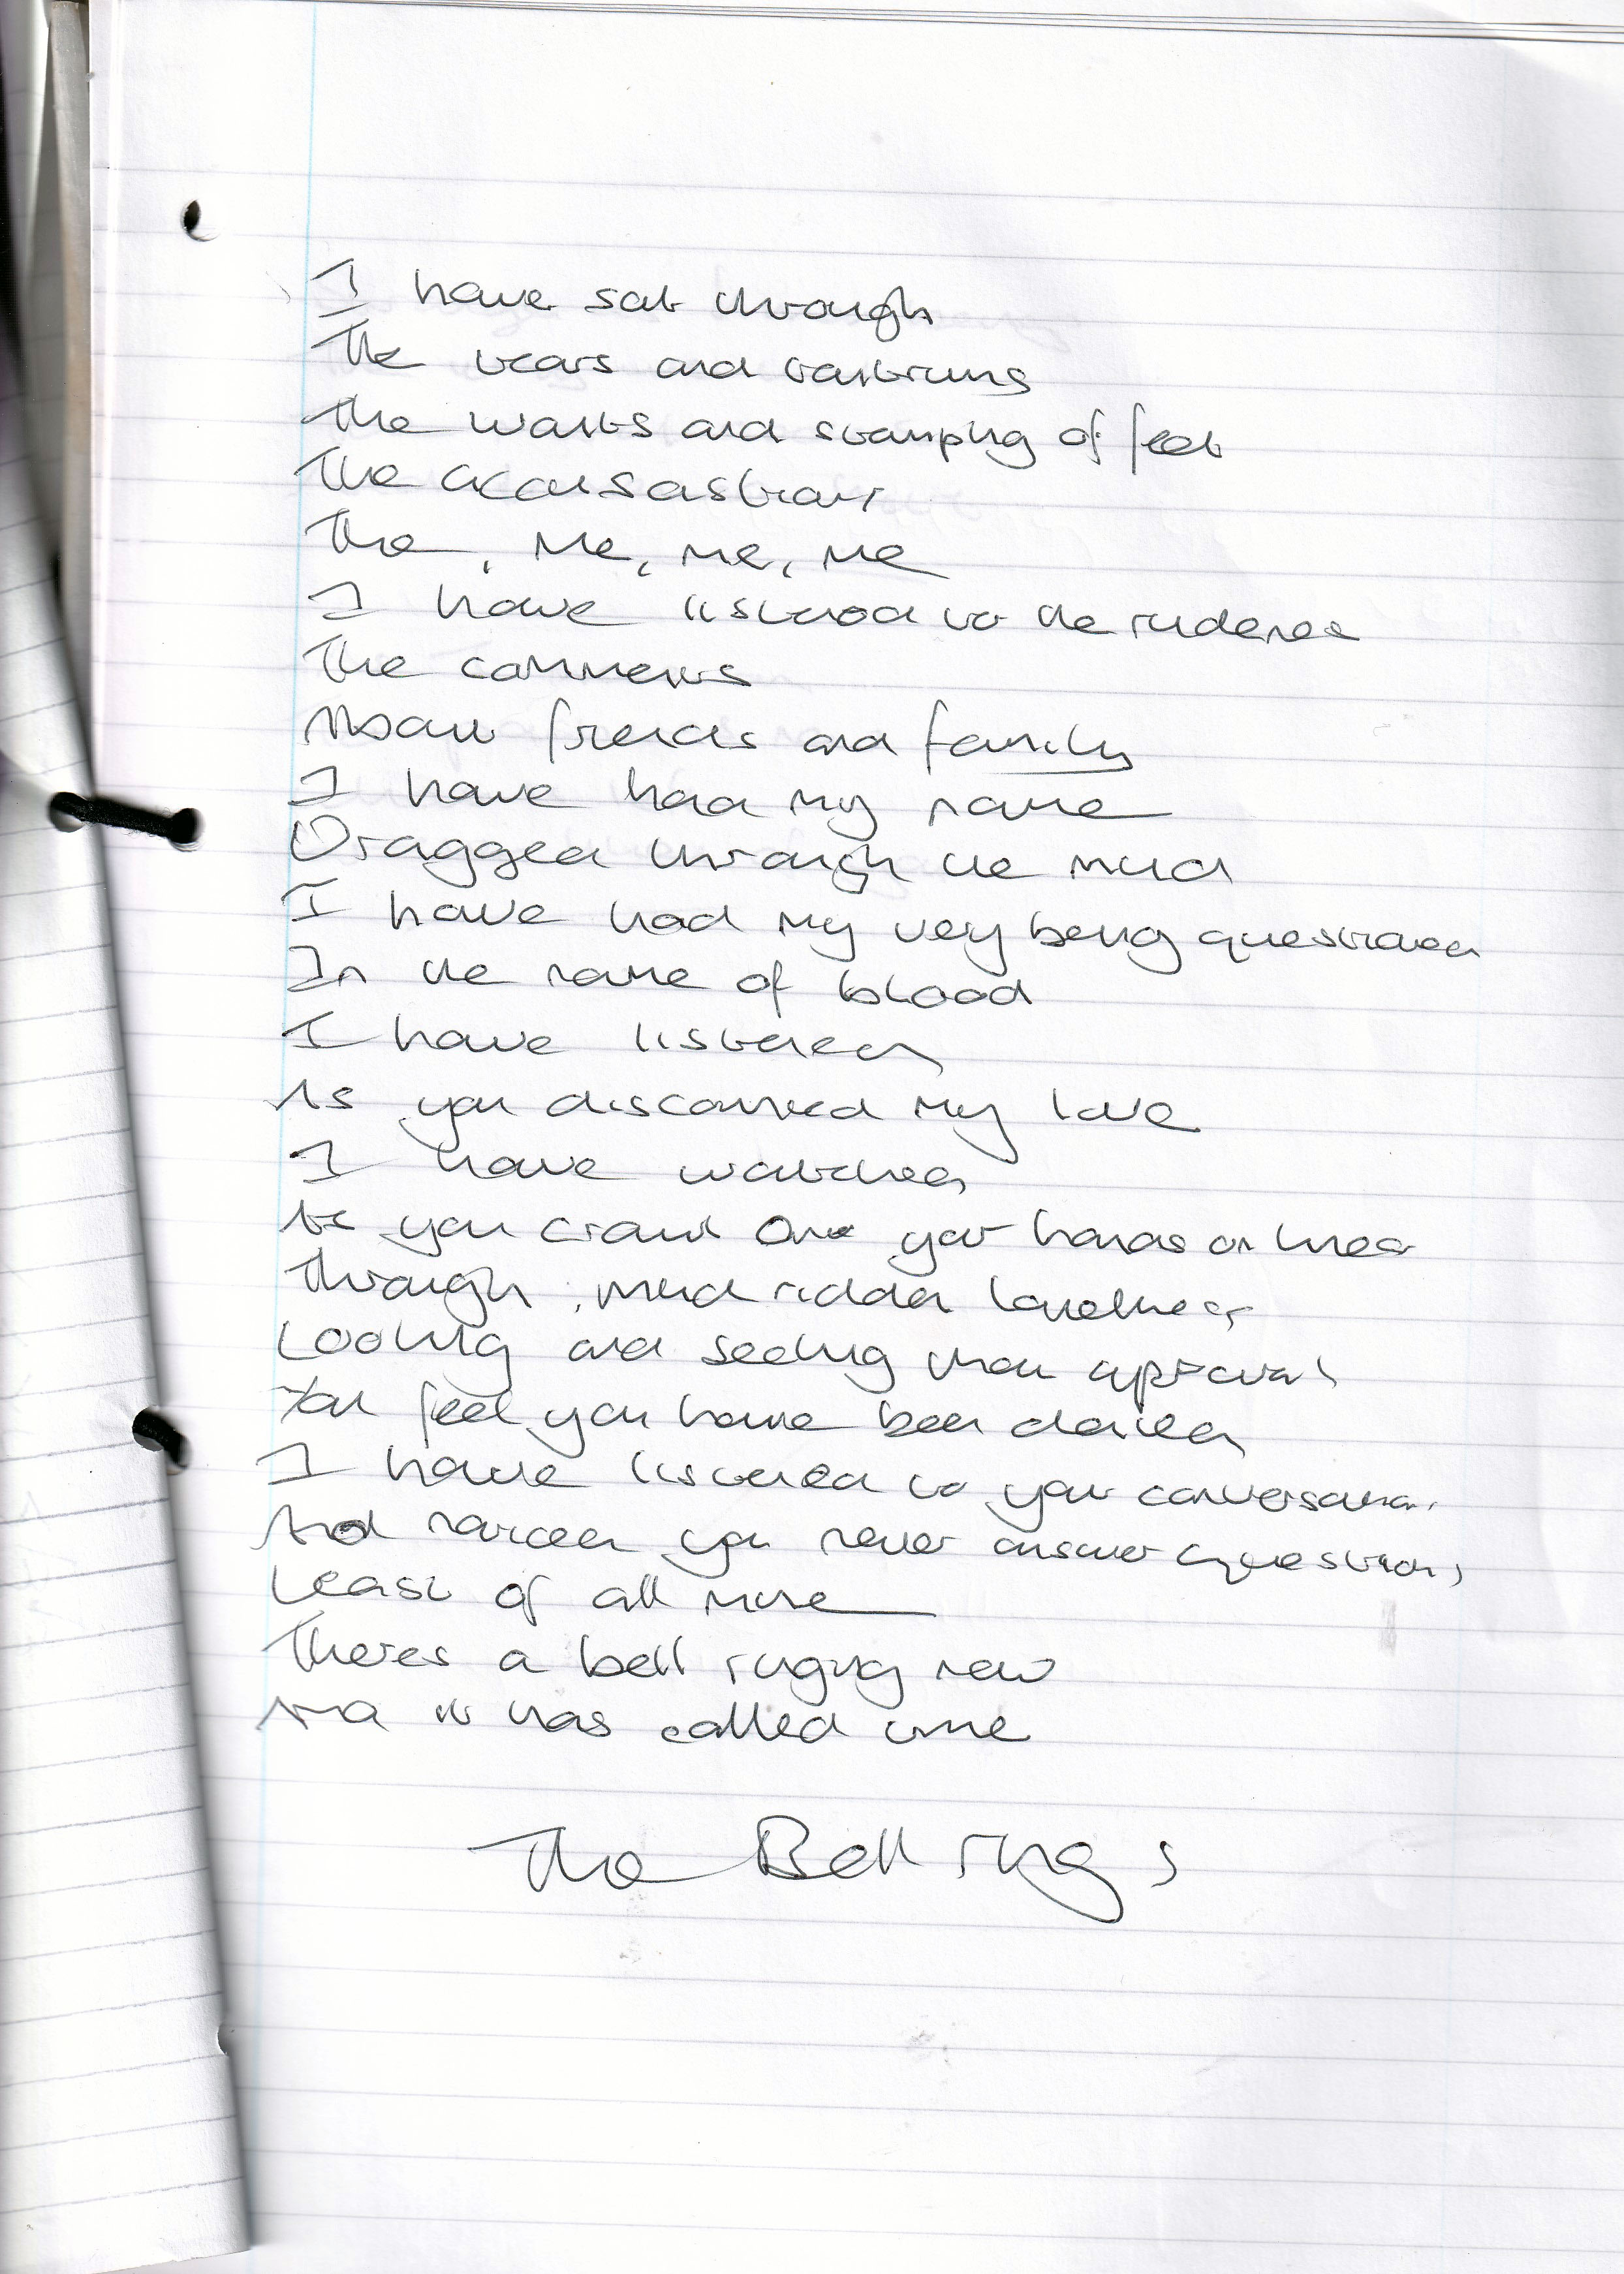 I have sat through
The tears and tantrums
The wants and stamping of feet
The accusastion
The, Me, me, me
I have listened to the rudenes
The comments
About friends and family
I have had my name
Dragged through the mud
I have had my very being questioned
In the name of blood
I have listened
As you disconned my love
I have watched
As you crawl One your hands on knees
Through, mud ridden loneliness
Looking and seeking your approval
You feel you have been denied
I have listened to your conversation
And noticed you never answer questions
Least of all mine
Theres a bell ringing now
And it has called time
The Bell rings